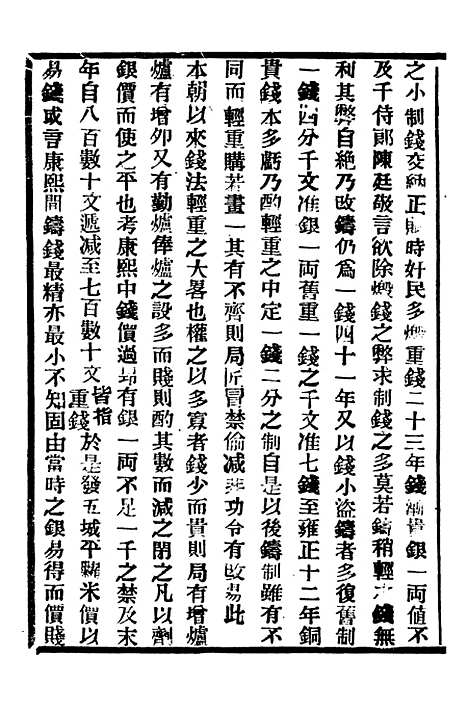 之小制錢交納正賦時奸民多燬重錢二十三年錢漸貴銀一両值不
及千侍郎陳廷敬言欲除燬錢之弊求制錢之多莫若鑄稍輕之錢無
利其弊自絶乃改鑄仍爲一錢四十一年又以錢小盜鑄者多復舊制
一錢四分千文准銀一両舊重一錢之千文准七錢至雍正十二年銅
貴錢本多虧乃酌輕重之中定一錢二分之制自是以後鑄制雖有不
同而輕重購若畫一其有不齊則局匠冒禁偷減非功令有改易此
本朝以來錢法輕重之大畧也權之以多寡者錢少而貴則局有增爐
爐有增卯又有勤爐俸爐之設多而賤則酌其數而減之閉之凡以劑
銀價而使之平也考康熙中錢價過昻有銀一両不足一千之禁及末
年自八百數十文遞减至七百數十文皆指重錢於是發五城平糶米價以
易錢或言康熙間鑄錢最精亦最小不知固由當時之銀易得而價賤